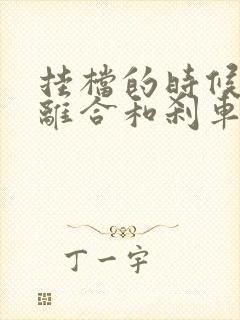 挂檔的時候
離合和刹車
丁一宇